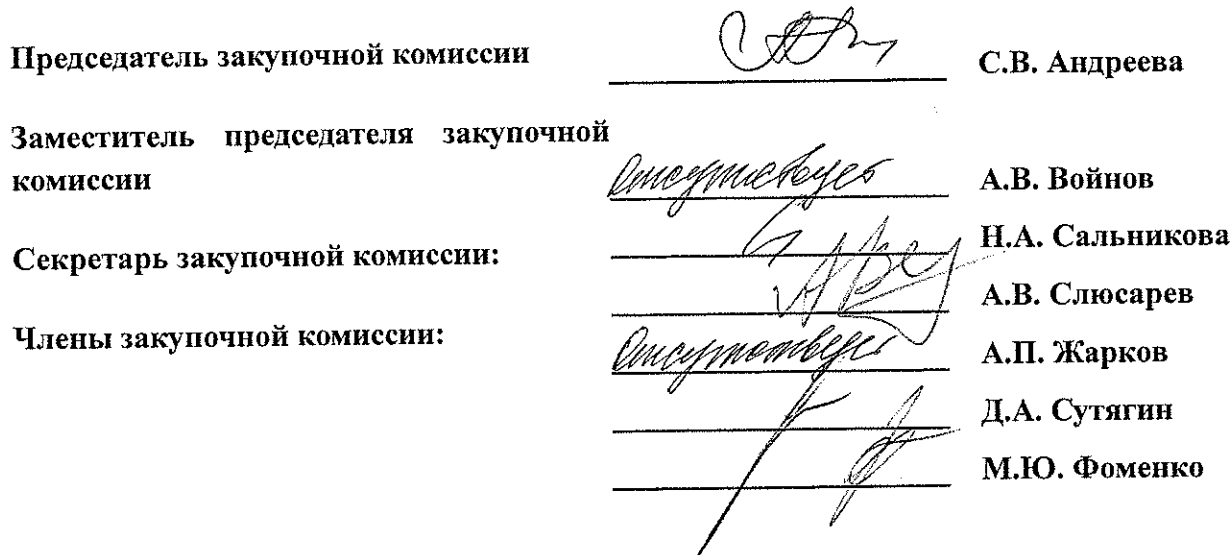 Председатель закупочной комиссии С.В. Андреева
Заместитель председателя закупочной
комиссии отсутствует А.В. Войнов
Н.А. Сальникова
Секретарь закупочной комиссии:
А.В. Слюсарев
Члены закупочной комиссии:
отсутствует А.П. Жарков
Д.А. Сутягин
М.Ю. Фоменко